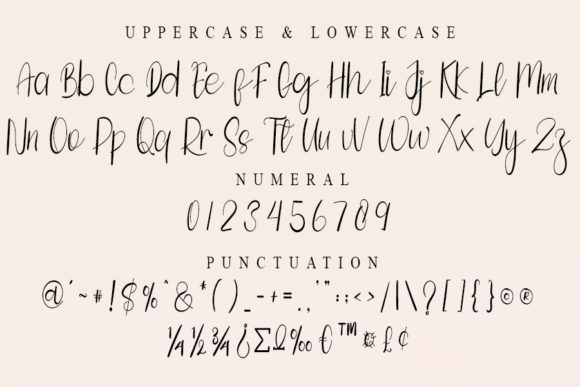 UPPERCASE & LOWERCASE
Aa Bb Cc Dd Ee fF Gg Hh Ii Jj Kk Ll Mm
Nn Oo Pp Qq Rr Ss Tt Uu vV Ww Xx Yy Zz
NUMERAL
0123456789
PUNCTUATION
@´~#!$%`&*()_-+=.,'":;<>/|\?[]{}©®
¼½¾¿ΣΩ‰€™¤£¢